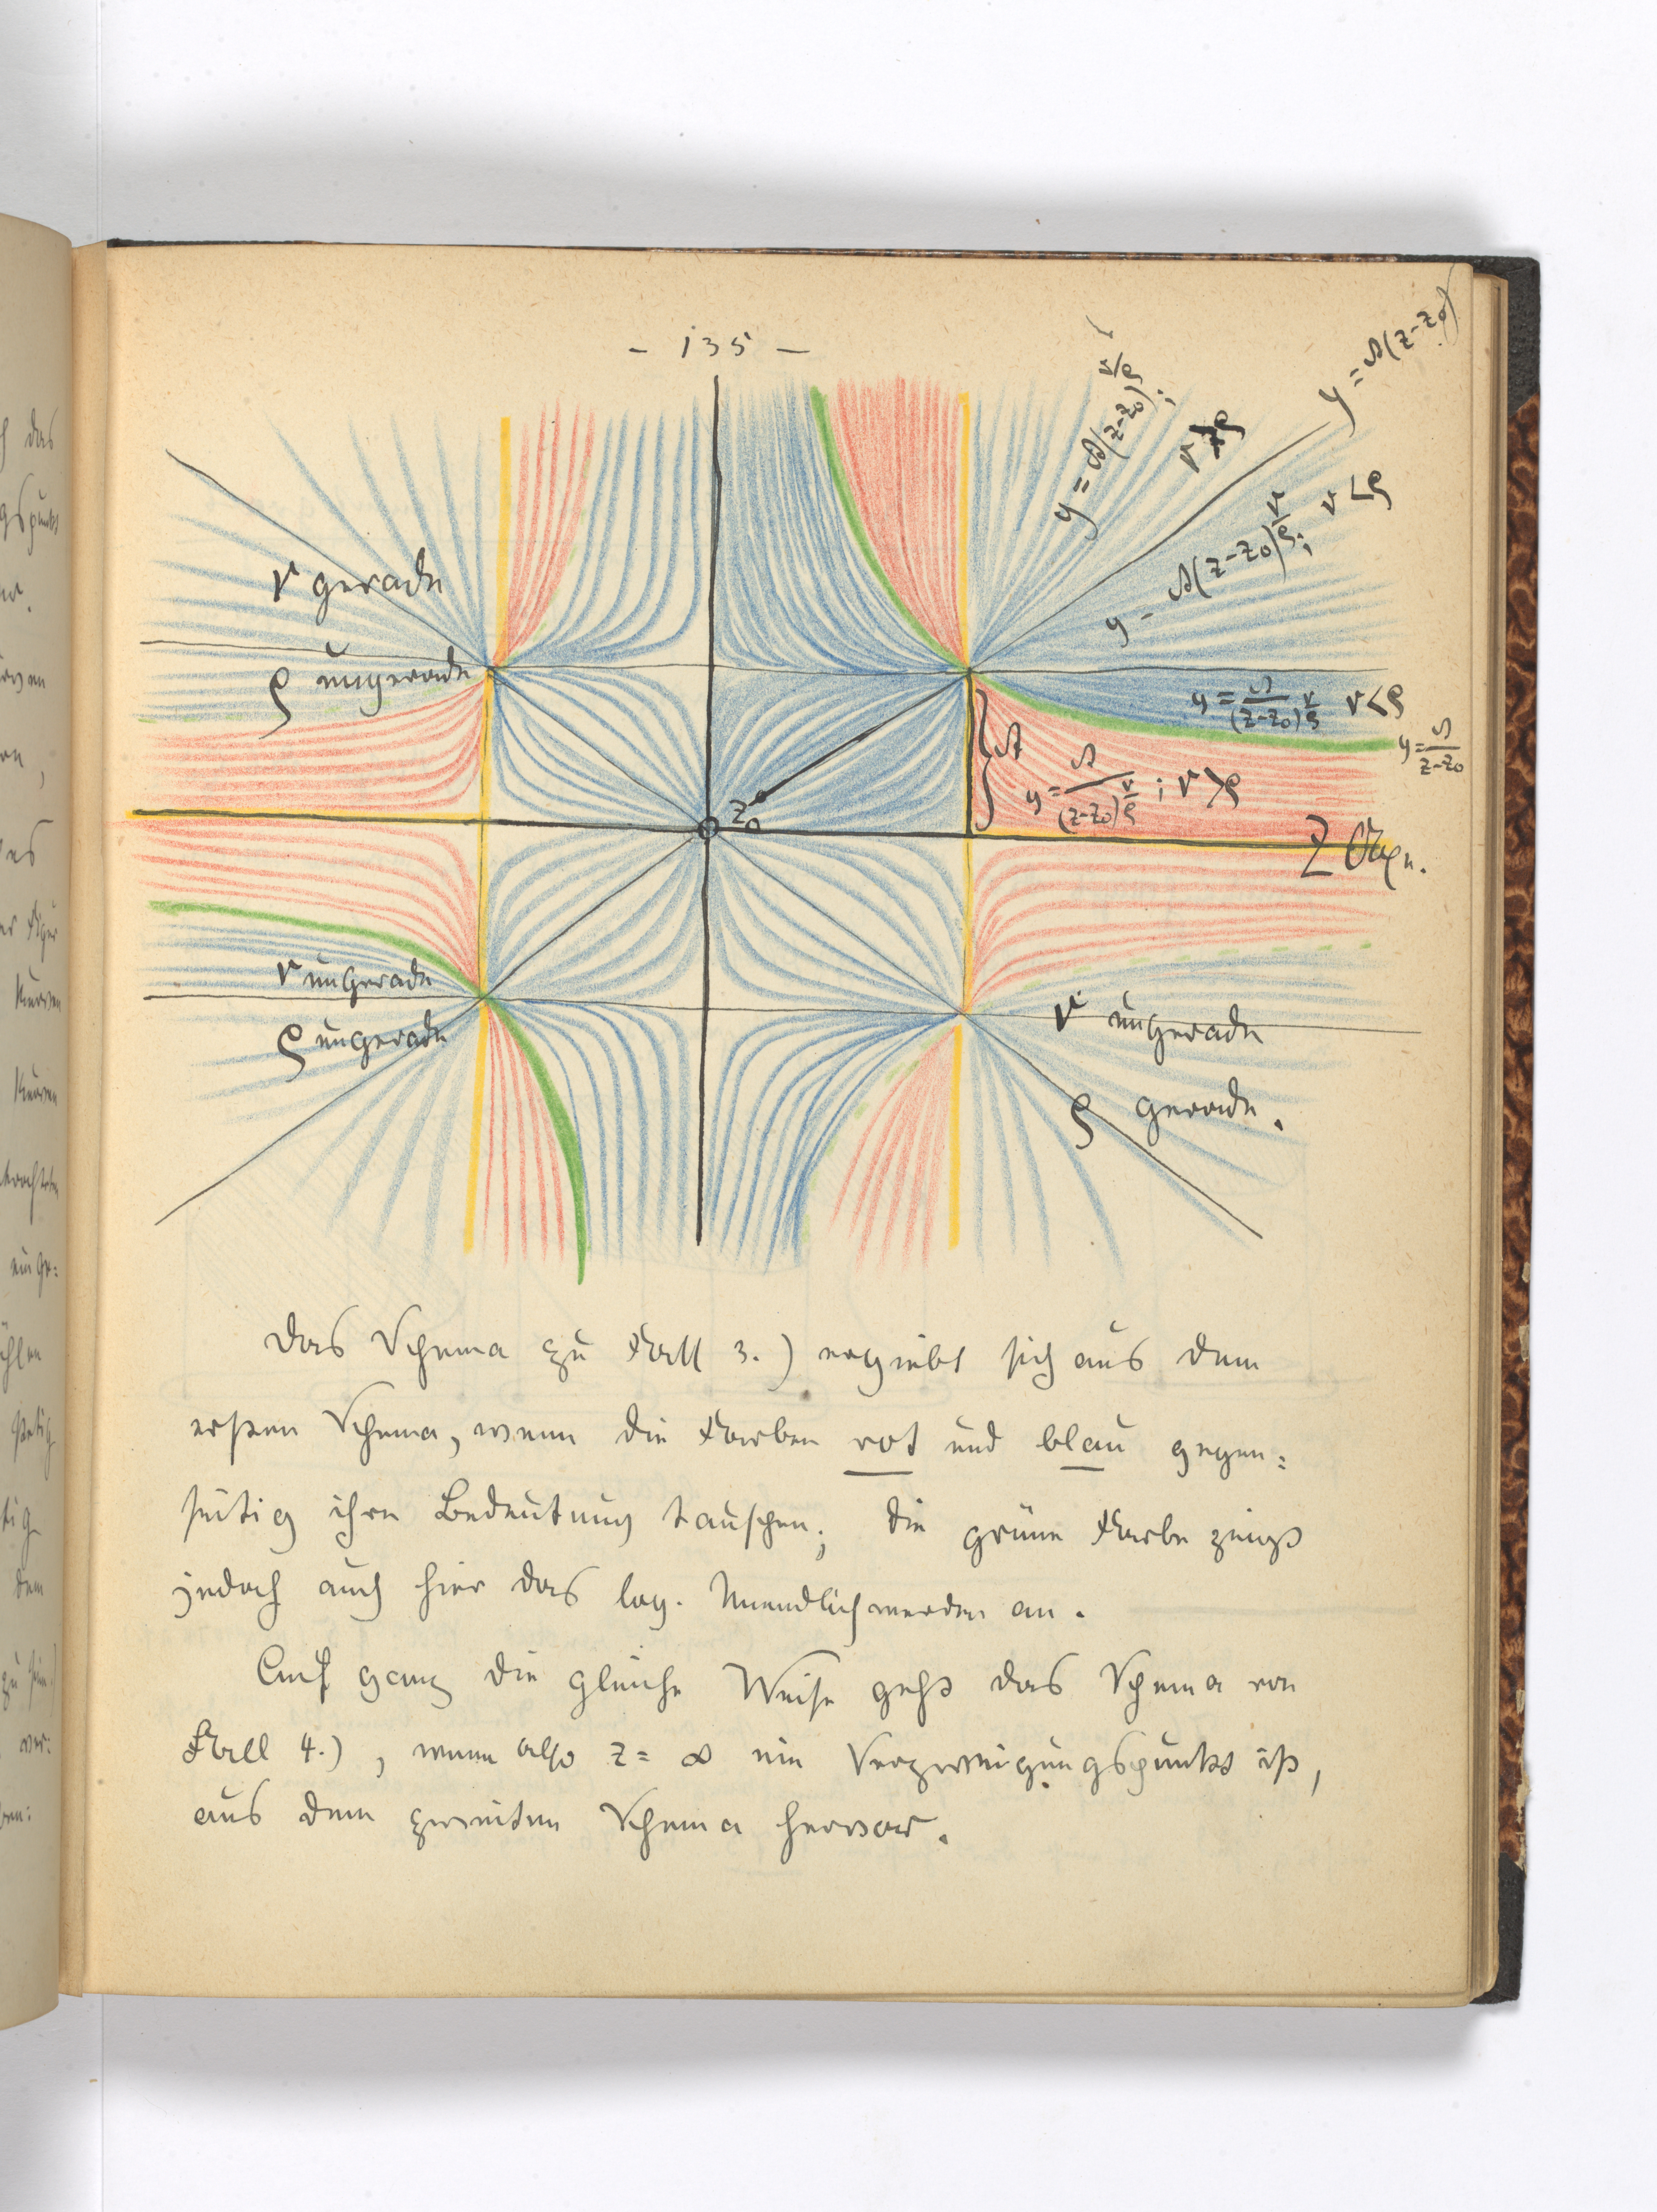 - 135 -
y = A(z-z₀)^{ν/ρ}; ν > ρ
y = A(z-z₀)
y = A(z-z₀)^{ν/ρ}; ν < ρ
ν gerade
ρ ungerade
y = A/(z-z₀)^{ν/ρ} ν < ρ
y = A/(z-z₀)
A
y = A/(z-z₀)^{ν/ρ}; ν > ρ
z₀
Z Axe.
ν ungerade
ρ ungerade
ν ungerade
ρ gerade.
Das Schema zu Fall 3.) ergiebt sich aus dem
ersten Schema, wenn die Farben rot und blau gegen=
seitig ihre Bedeutung tauschen; die grüne Farbe zeigt
jedoch auch hier das log. Unendlichwerden an.
Auf ganz die gleiche Weise geht das Schema von
Fall 4.), wenn also z = ∞ ein Verzweigungspunkt ist,
aus dem zweiten Schema hervor.